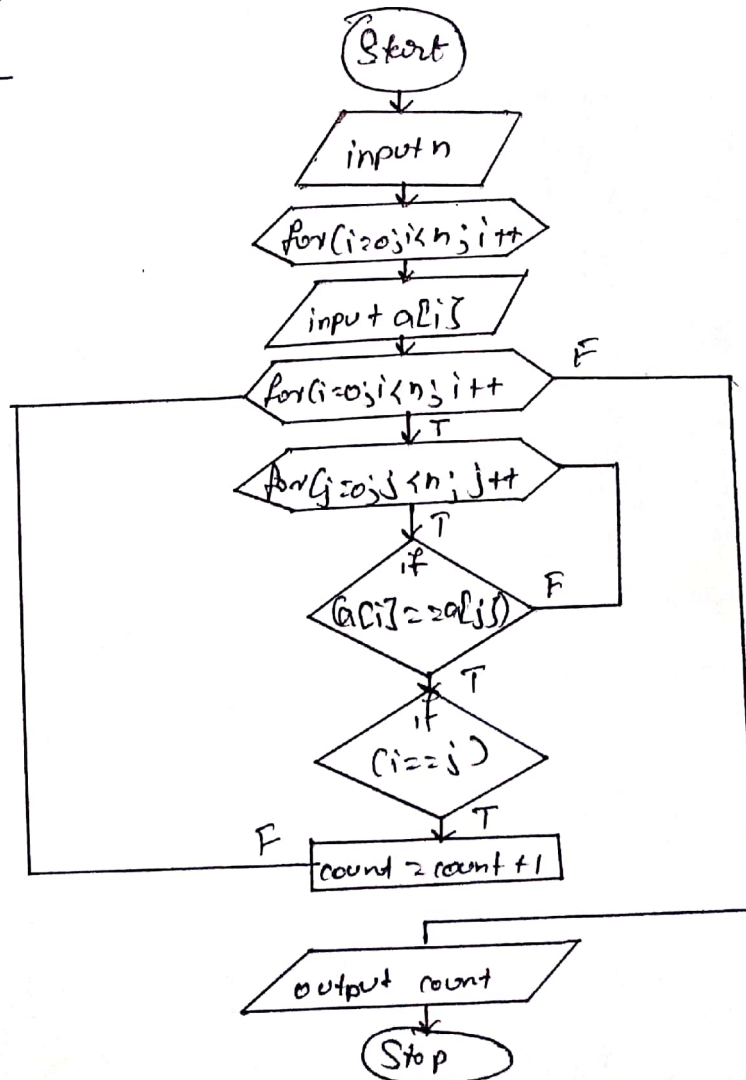 Start
input n
for(i=0;i<n;i++
input a[i]
for(i=0;i<n;i++
F
T
for(j=0;j<n;j++
T
if
(a[i]==a[j])
F
T
if
(i==j)
T
F
count=count+1
output count
Stop